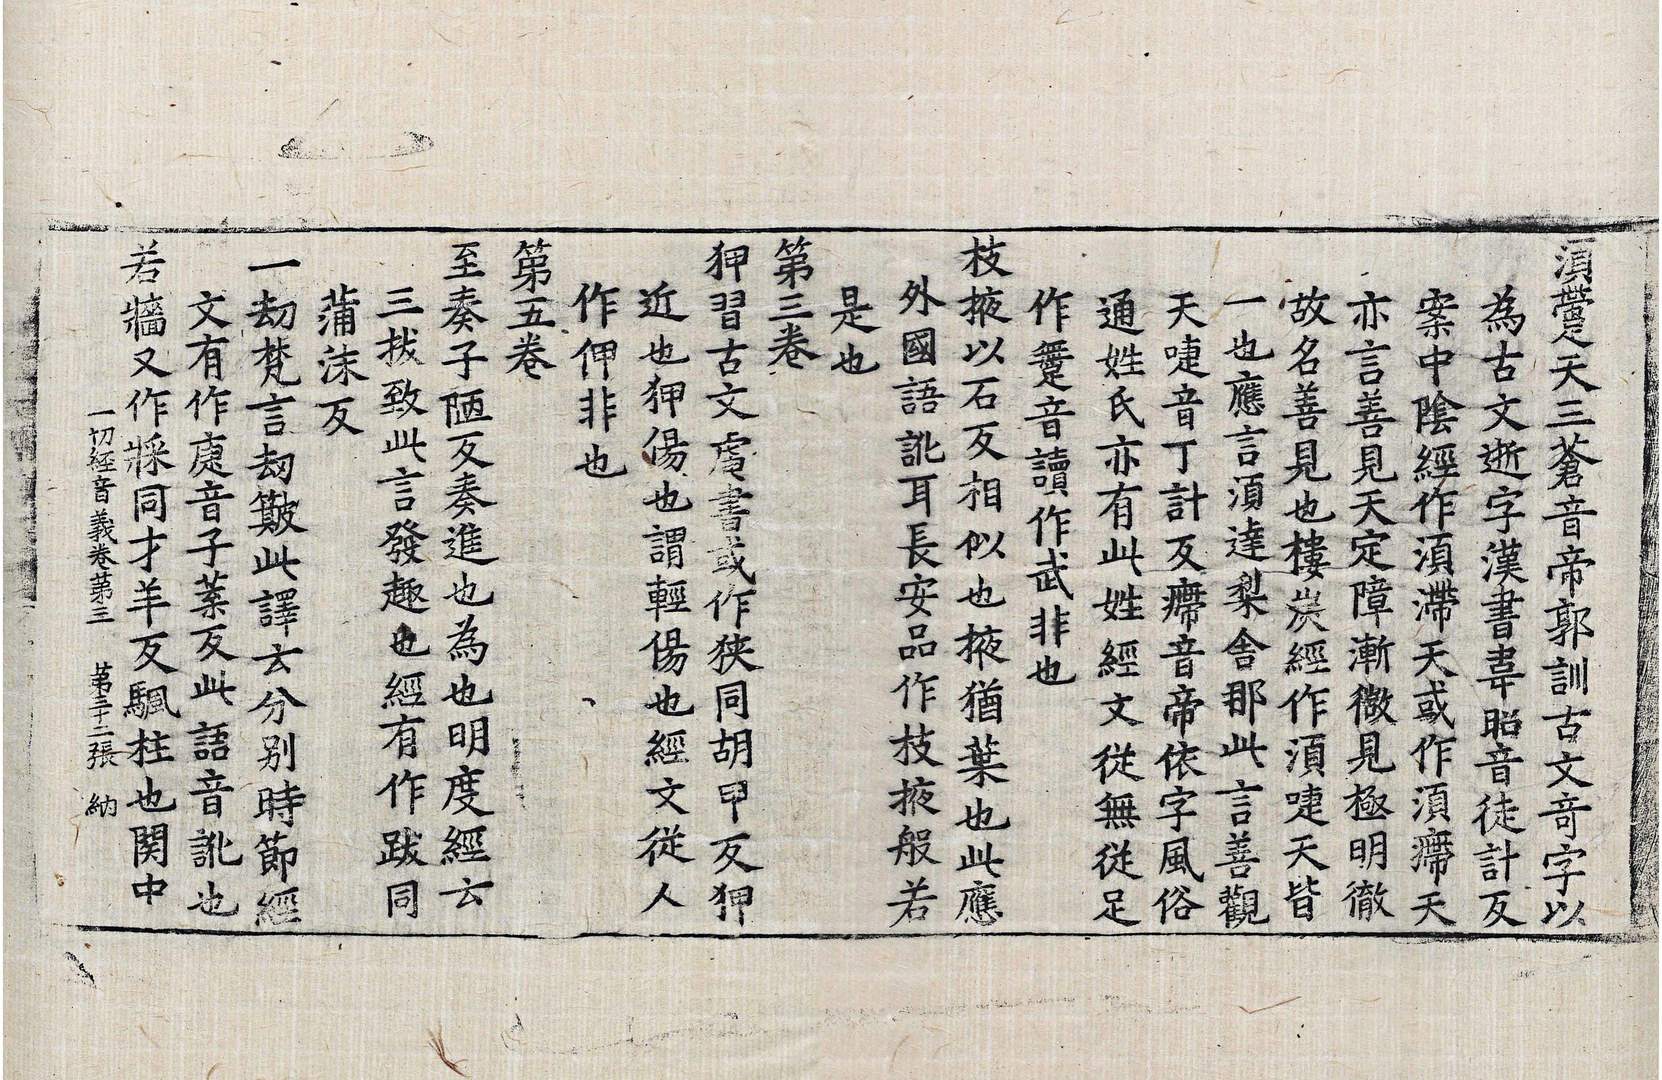 湏㿃天三蒼音帝郭訓古文竒字以
為古文逝字漢書韋昭音徒計反
案中陰經作湏滯天或作湏㿃天
亦言善見天定障漸微見極明徹
故名善見也樓炭經作湏啑天皆
一也應言湏達梨舎那此言善觀
天啑音丁計反㿃音帝依字風俗
通姓氏亦有此姓經文從無從足
作躉音讀作武非也
枝掖以石反相似也掖猶葉也此應
外國語訛耳長安品作枝掖般若
是也
第三卷
狎習古文虗書或作狹同胡甲反狎
近也狎傷也謂輕傷也經文從人
作伊非也
第五卷
至奏子陋反奏進也為也明度經云
三拔致此言發趣也經有作跋同
蒲沫反
一劫梵言劫簸此譯云分别時節經
文有作㢑音子葉反此語音訛也
若牆又作牂同才羊反颿柱也関中
一切經音義卷第三 第三十二張 納